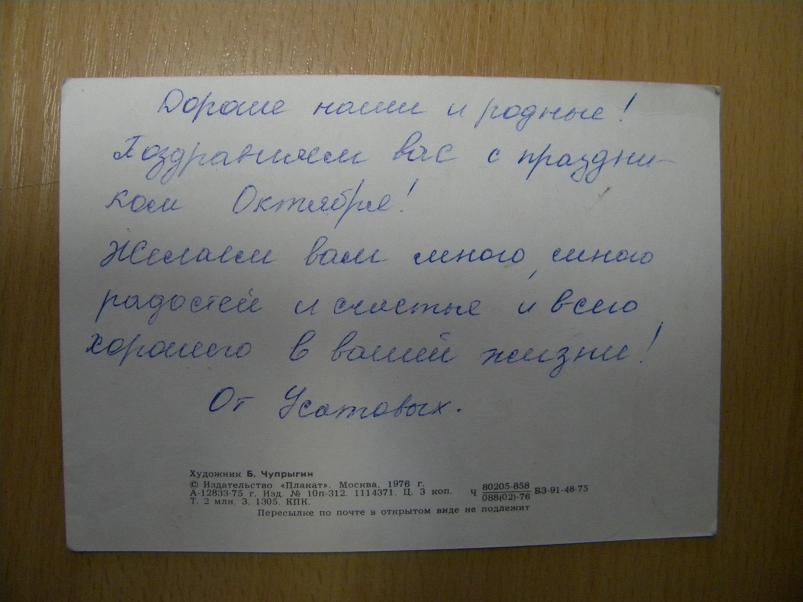 Дорогие наши и родные!
Поздравляем вас с праздни-
ком Октября!
Желаем вам много, много
радостей и счастья и всего
хорошего в вашей жизни!
От Усатовых.
Художник Б. Чупрыгин
© Издательство «Плакат». Москва, 1976 г.
А-12833-75 г. Изд. № 10п-312. 1114371. Ц. 3 коп. Ч 80205-858/088(02)-76 БЗ-91-48-75
Т. 2 млн. З. 1305. КПК.
Пересылке по почте в открытом виде не подлежит